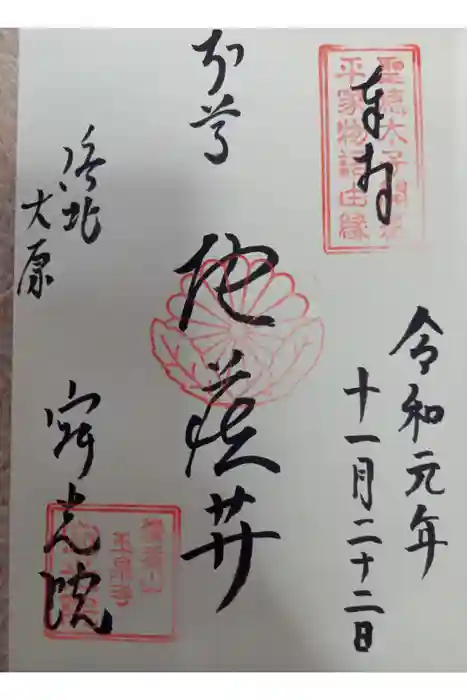 聖徳太子開創
平家物語由縁
奉拝
令和元年
十一月二十二日
本尊
地蔵𦬇
洛北
大原
寂光院
清香山
玉泉寺